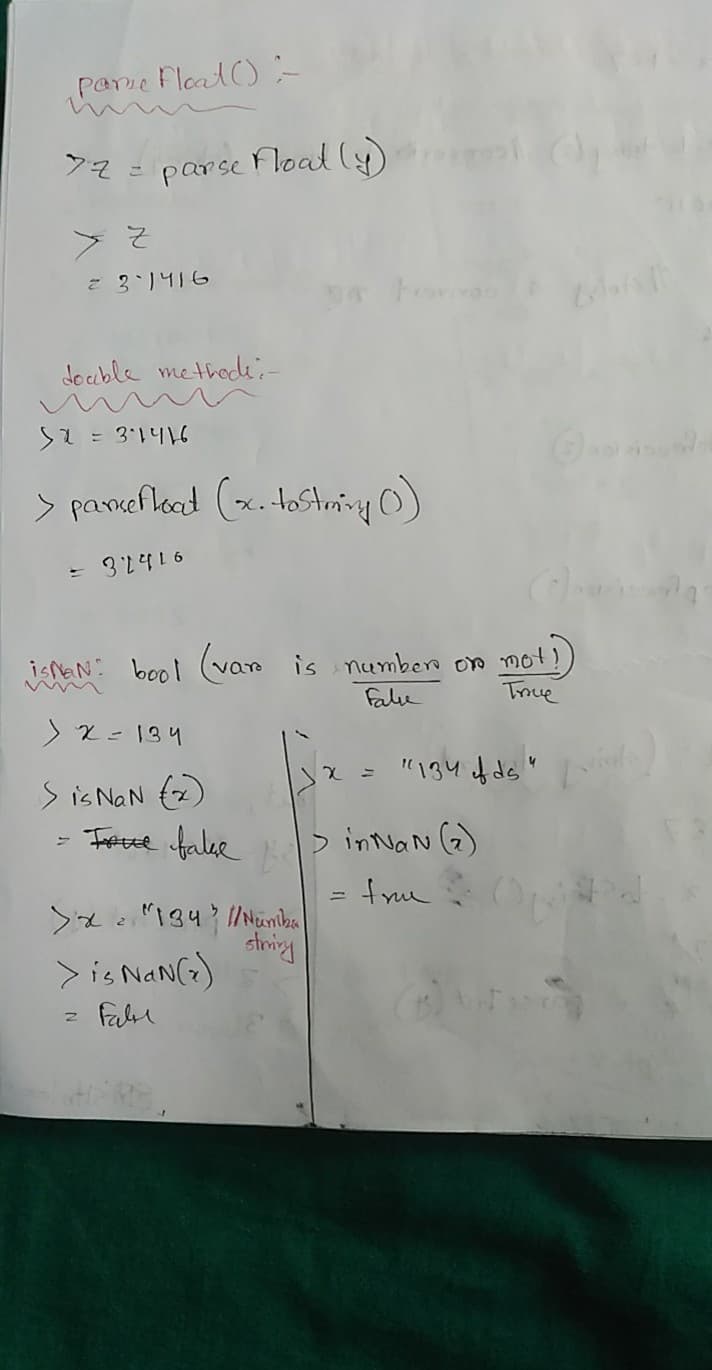 parse Float() :-
> z = parse Float (y)
> z
= 3.1416
double method:-
> x = 3.1416
> parsefloat (x. toString ())
= 3.1416
isNaN: bool (var is number or not!)
False True
> x = 134
> isNaN (x)
= True false
> x = "134" //Number
string
> isNaN(x)
= False
> x = "134 fds"
> inNaN (x)
= true